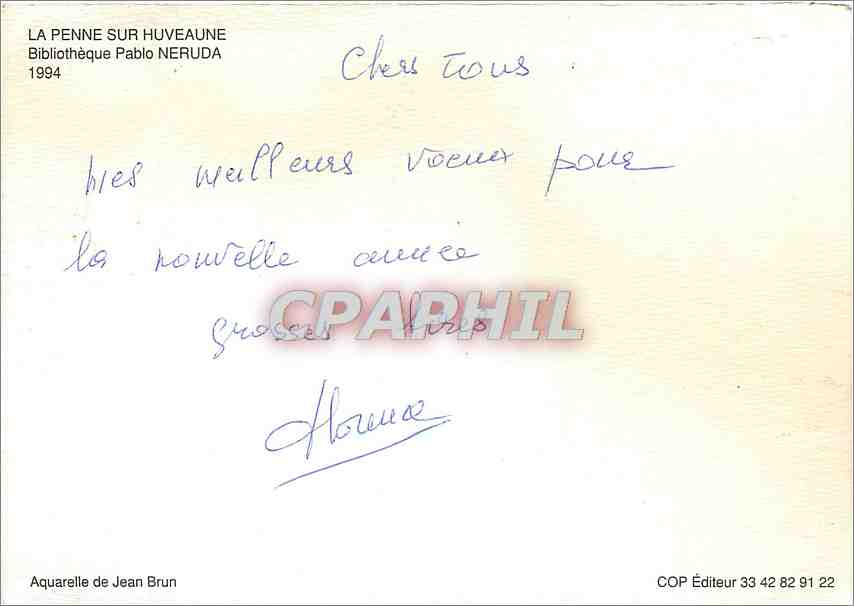 LA PENNE SUR HUVEAUNE
Bibliothèque Pablo NERUDA
1994
Chers Tous
Mes meilleurs voeux pour
la nouvelle année
grosses bises
Florence
CPAPHIL
Aquarelle de Jean Brun
COP Éditeur 33 42 82 91 22